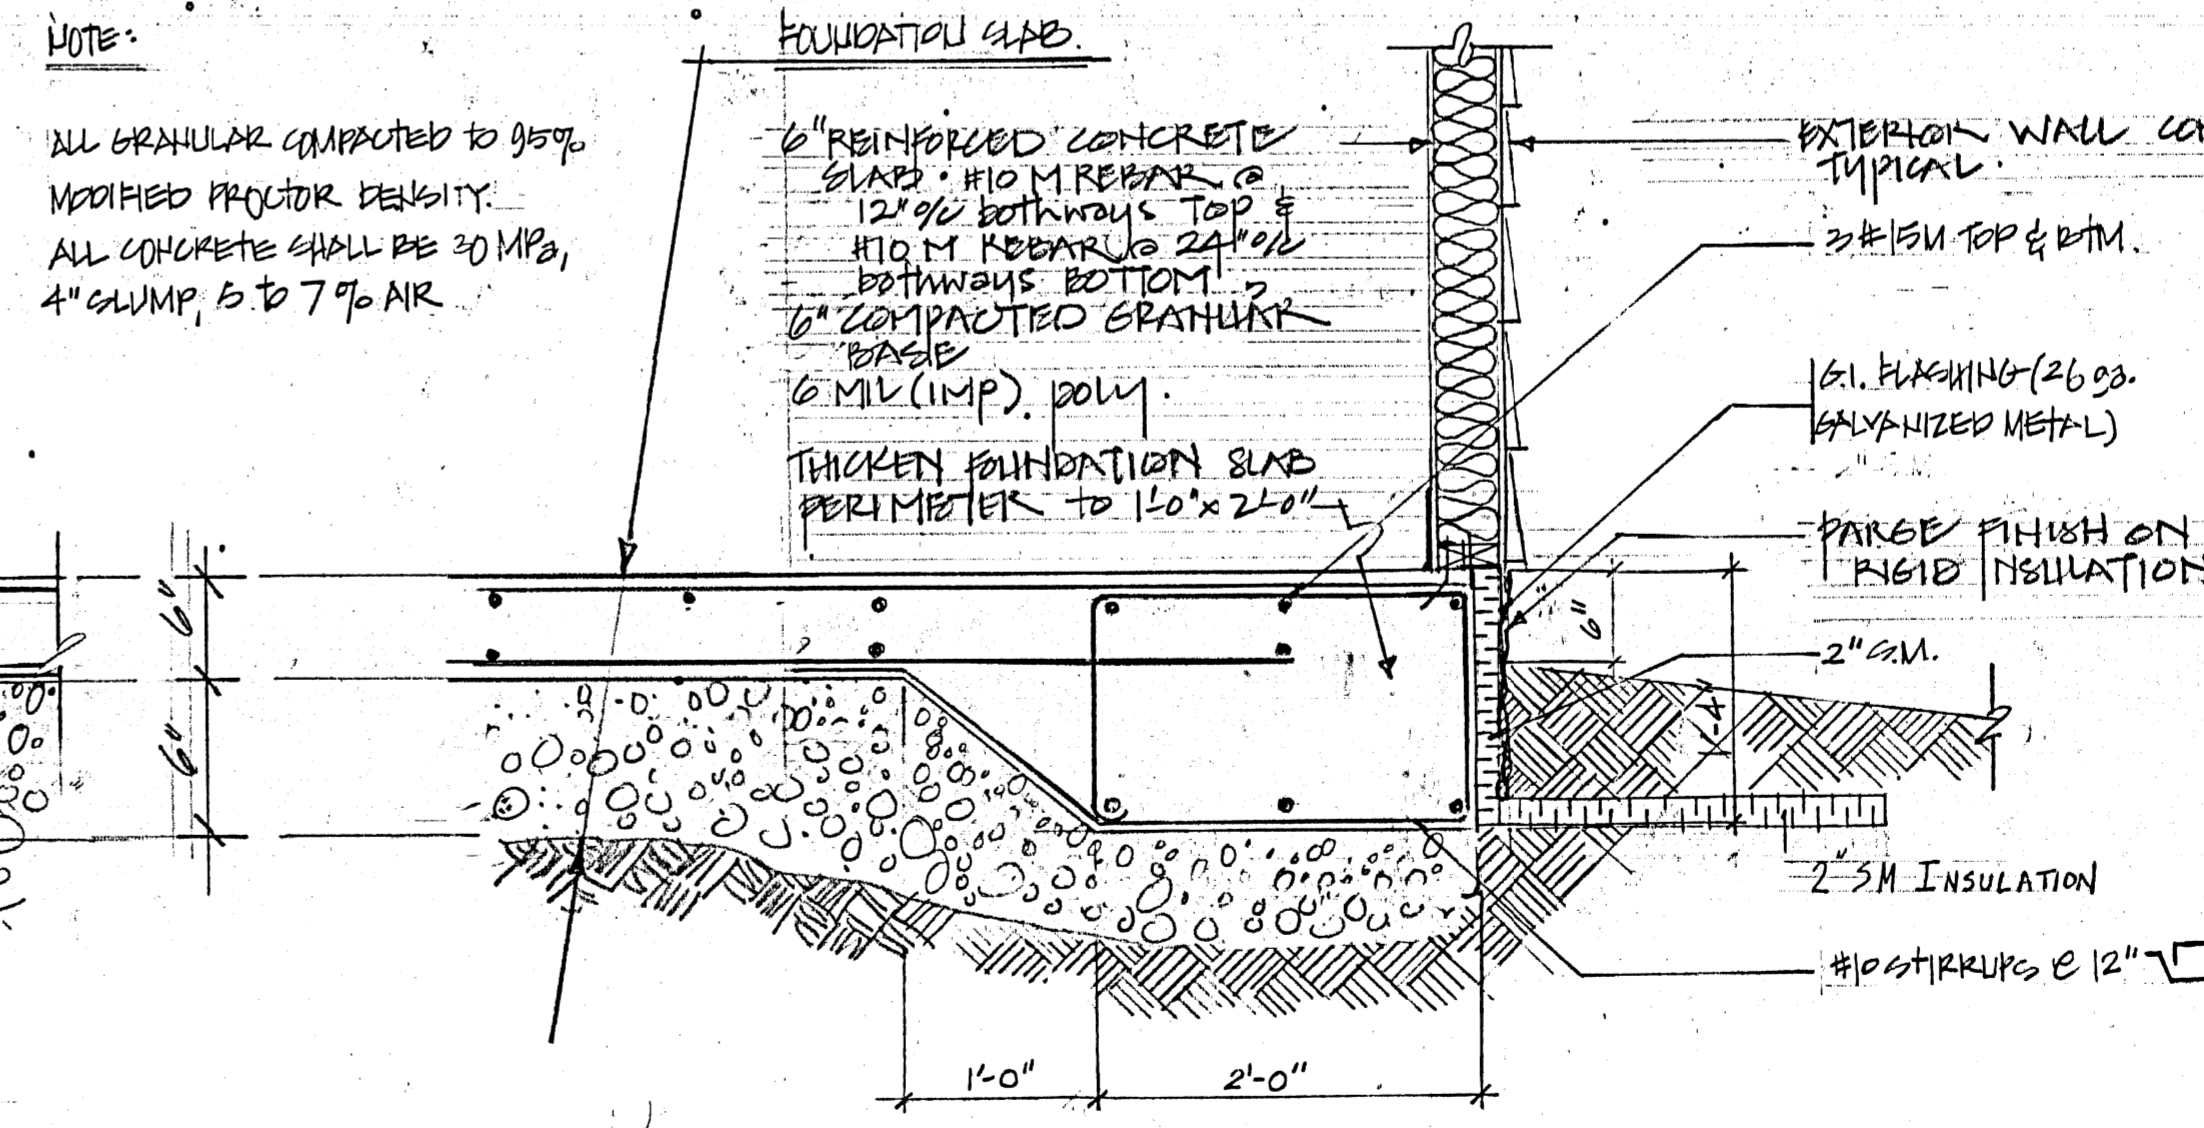 NOTE:
ALL GRANULAR COMPACTED to 95%
MODIFIED PROCTOR DENSITY.
ALL CONCRETE SHALL BE 30 MPa,
4" SLUMP, 5 to 7 % AIR
FOUNDATION SLAB.
6" REINFORCED CONCRETE
SLAB • #10 M REBAR @
12" o/c bothways TOP &
#10 M REBAR @ 24" o/c
bothways BOTTOM
6" COMPACTED GRANULAR
BASE
6 MIL (IMP). poly.
THICKEN FOUNDATION SLAB
PERIMETER to 1'-0" x 2'-0"
EXTERIOR WALL CON
TYPICAL.
3 #15M TOP & BTM.
G.I. FLASHING (26 ga.
GALVANIZED METAL)
PARGE FINISH ON
RIGID INSULATION
2" S.M.
2" SM INSULATION
#10 STIRRUPS @ 12"
6"
6"
6"
1'-4"
1'-0"
2'-0"